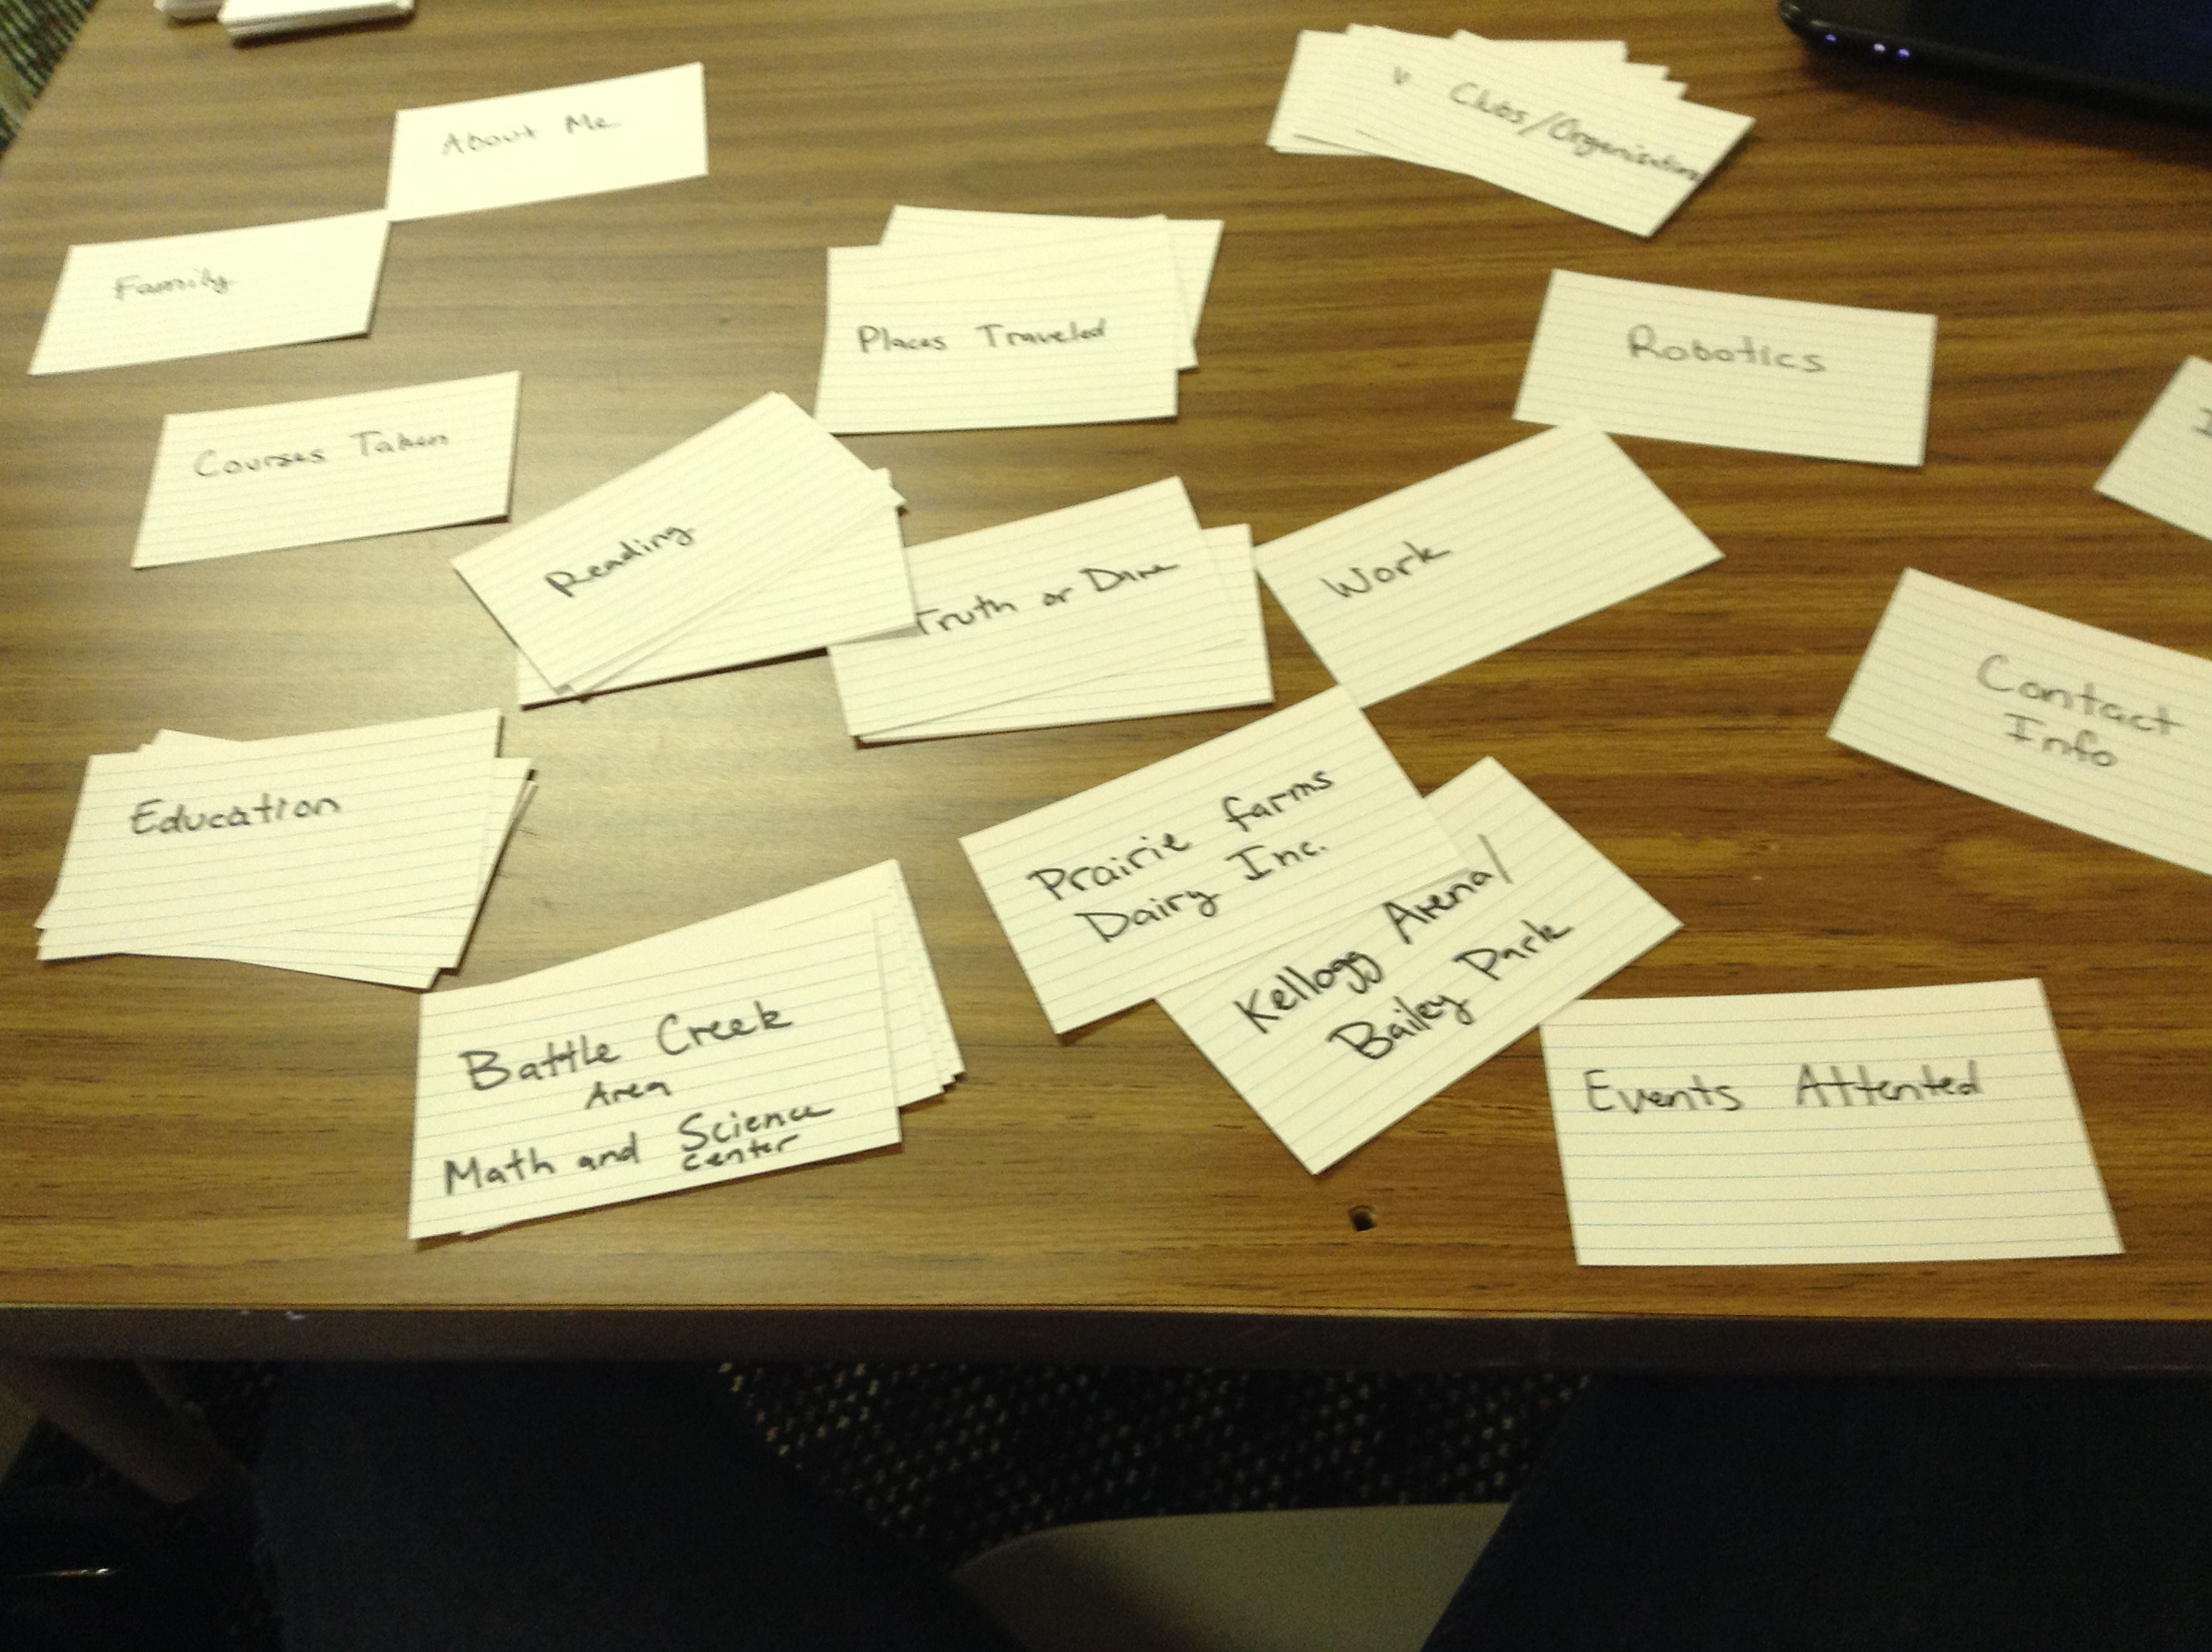 About Me
Clubs/Organisations
Family
Places Traveled
Robotics
Courses Taken
Reading
Truth or Dare
Work
Contact
Info
Education
Prairie farms
Dairy Inc.
Kellogg Arena/
Bailey Park
Battle Creek
Area
Math and Science
center
Events Attented